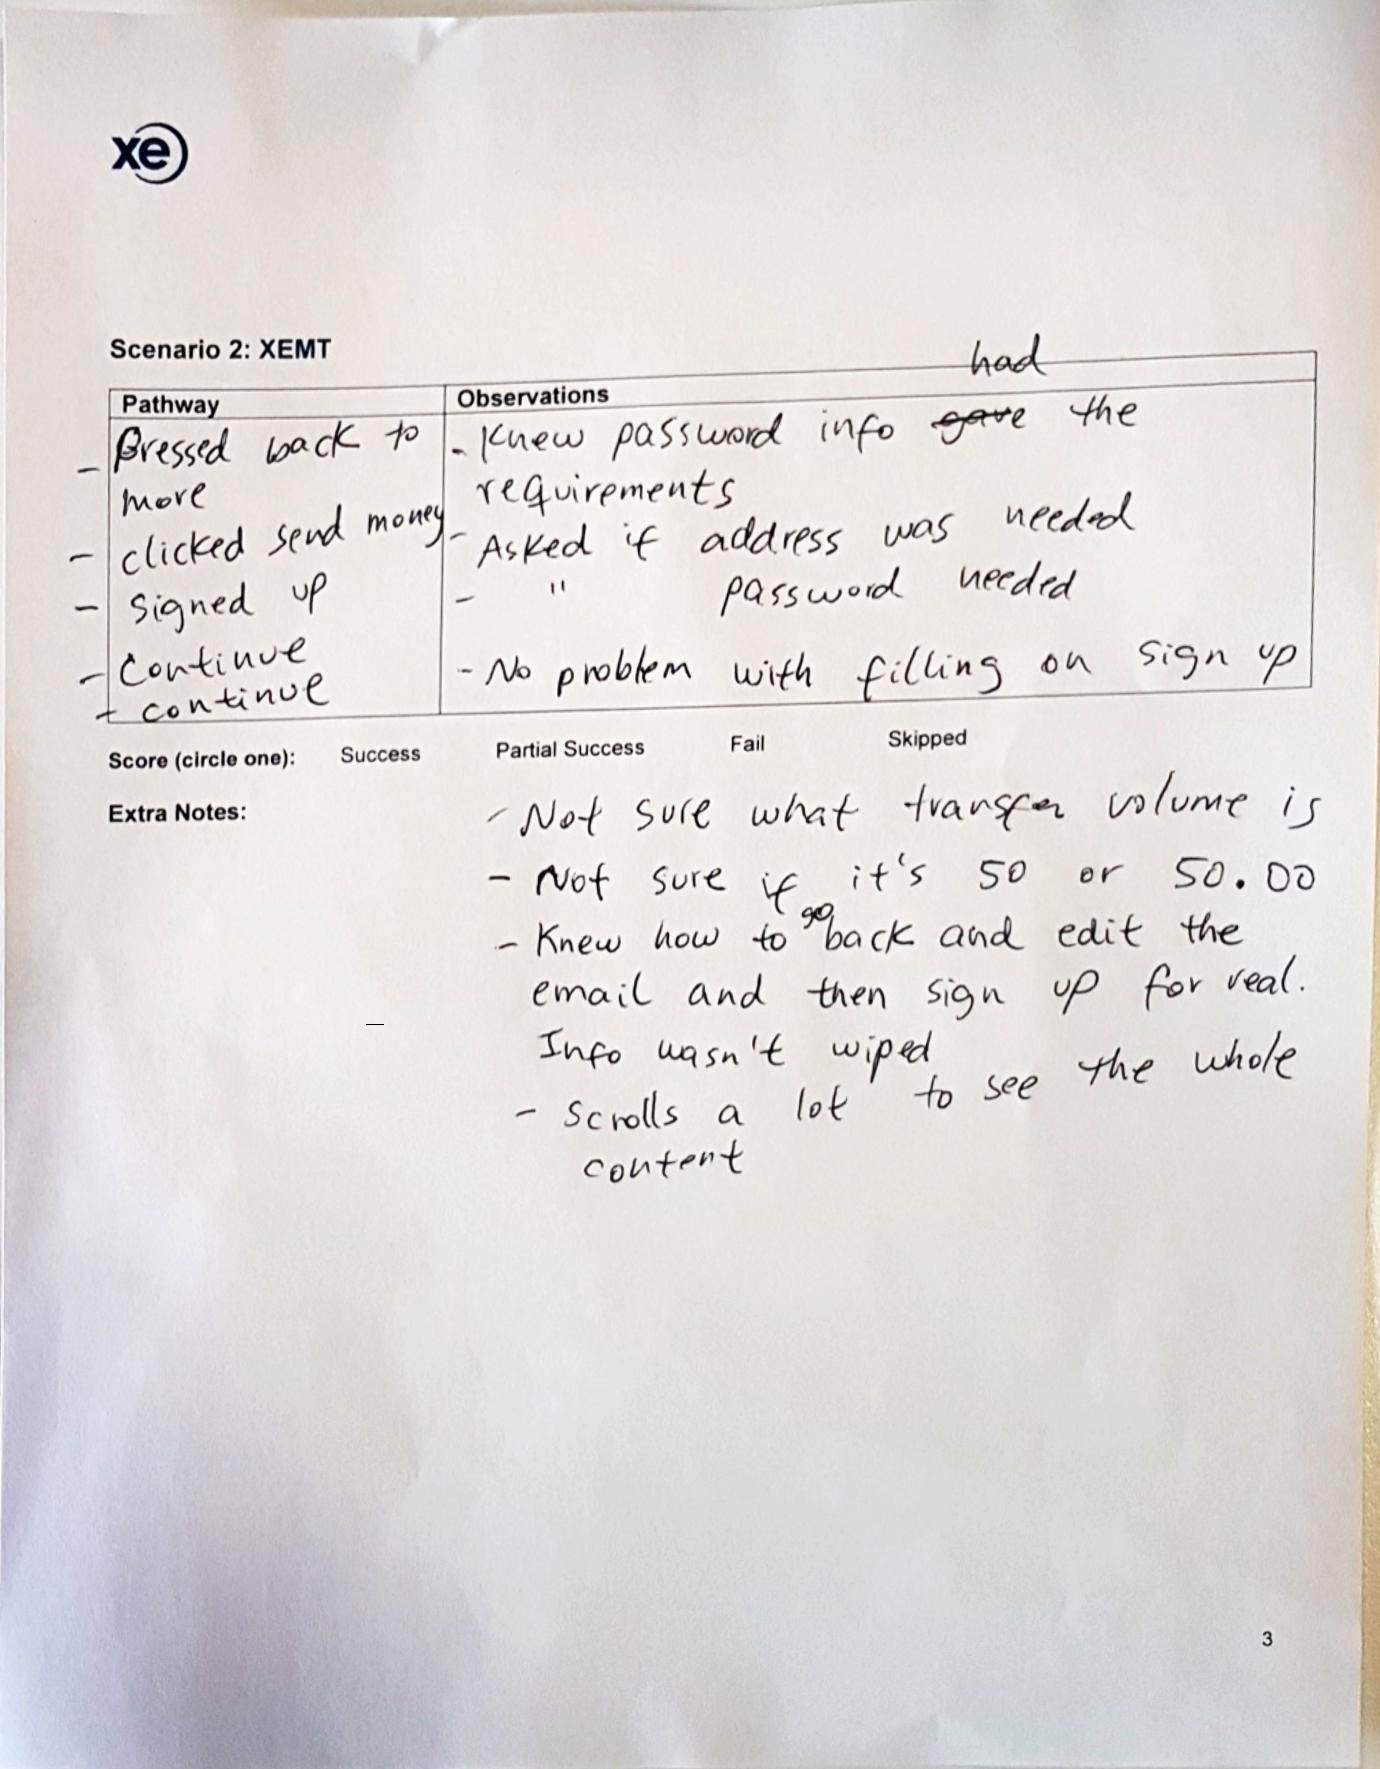 xe
Scenario 2: XEMT
had
Pathway
Observations
- Pressed back to
more
- clicked send money
- signed up
- Continue
- continue
- Knew password info gave the
requirements
- Asked if address was needed
- " password needed
- No problem with filling on sign up
Score (circle one): Success Partial Success Fail Skipped
Extra Notes:
- Not sure what transfer volume is
- Not sure if it's 50 or 50.00
go
- Knew how to back and edit the
email and then sign up for real.
Info wasn't wiped
- Scrolls a lot to see the whole
content
3